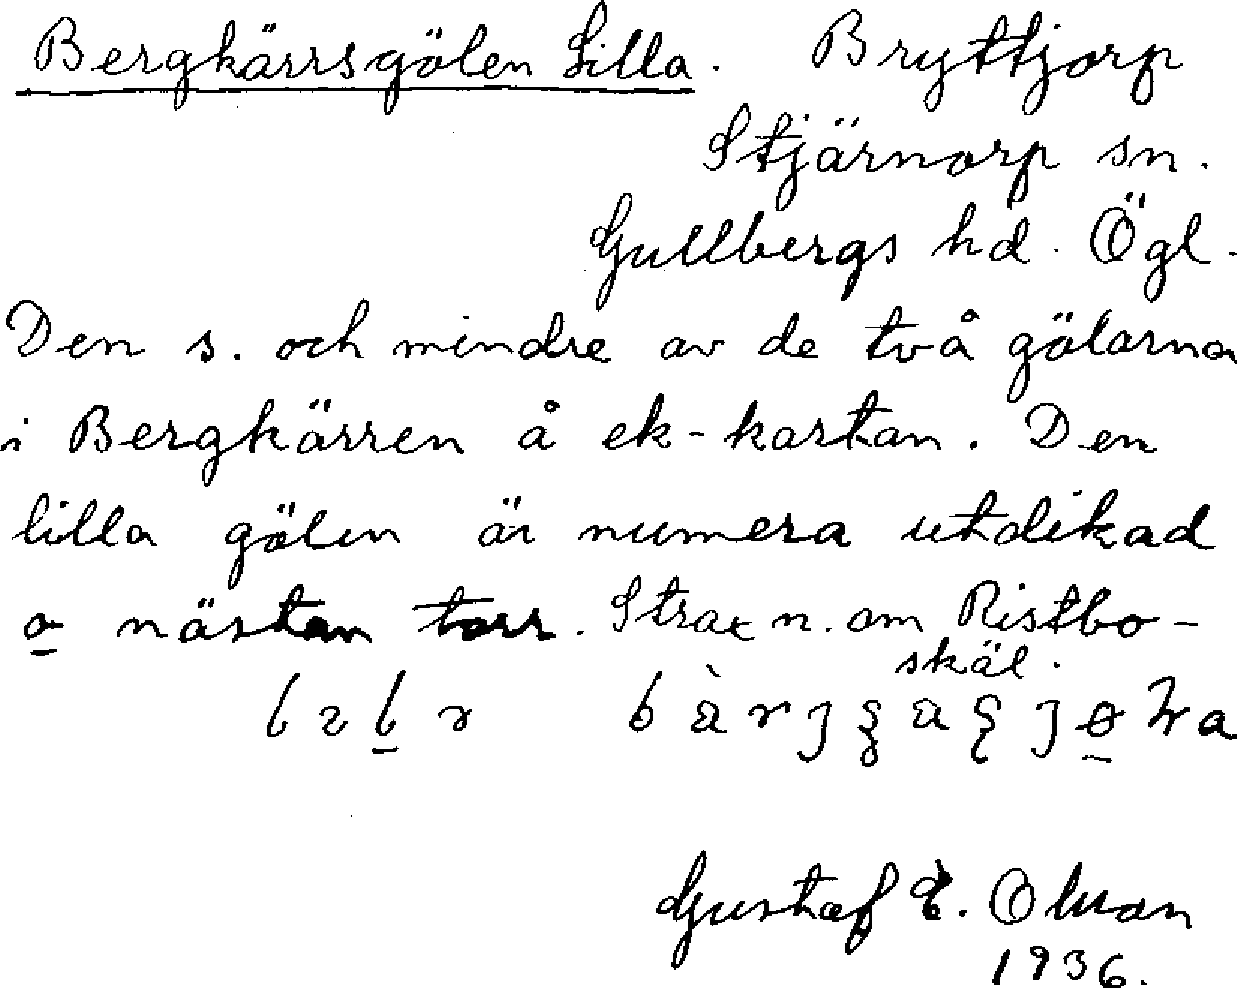 Bergkärrsgölen Lilla. Bryttjorp
Stjärnorp sn.
Gullbergs hd. Ögl.
Den s. och mindre av de två gölarna
i Bergkärren å ek-kartan. Den
lilla gölen är numera utdikad
o nästan torr. Strax n. om Ristbo-
skäl.
Gustaf E. Olson
1936.